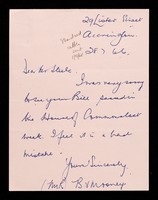 29 Lister Street
Accrington.
28.7.66.
Dear Mr Steele
I was very sorry
to see your Bill failed in
the House of Commons last
week. I feel it is a great
mistake.
Yours Sincerely
(Mrs B V Mooney